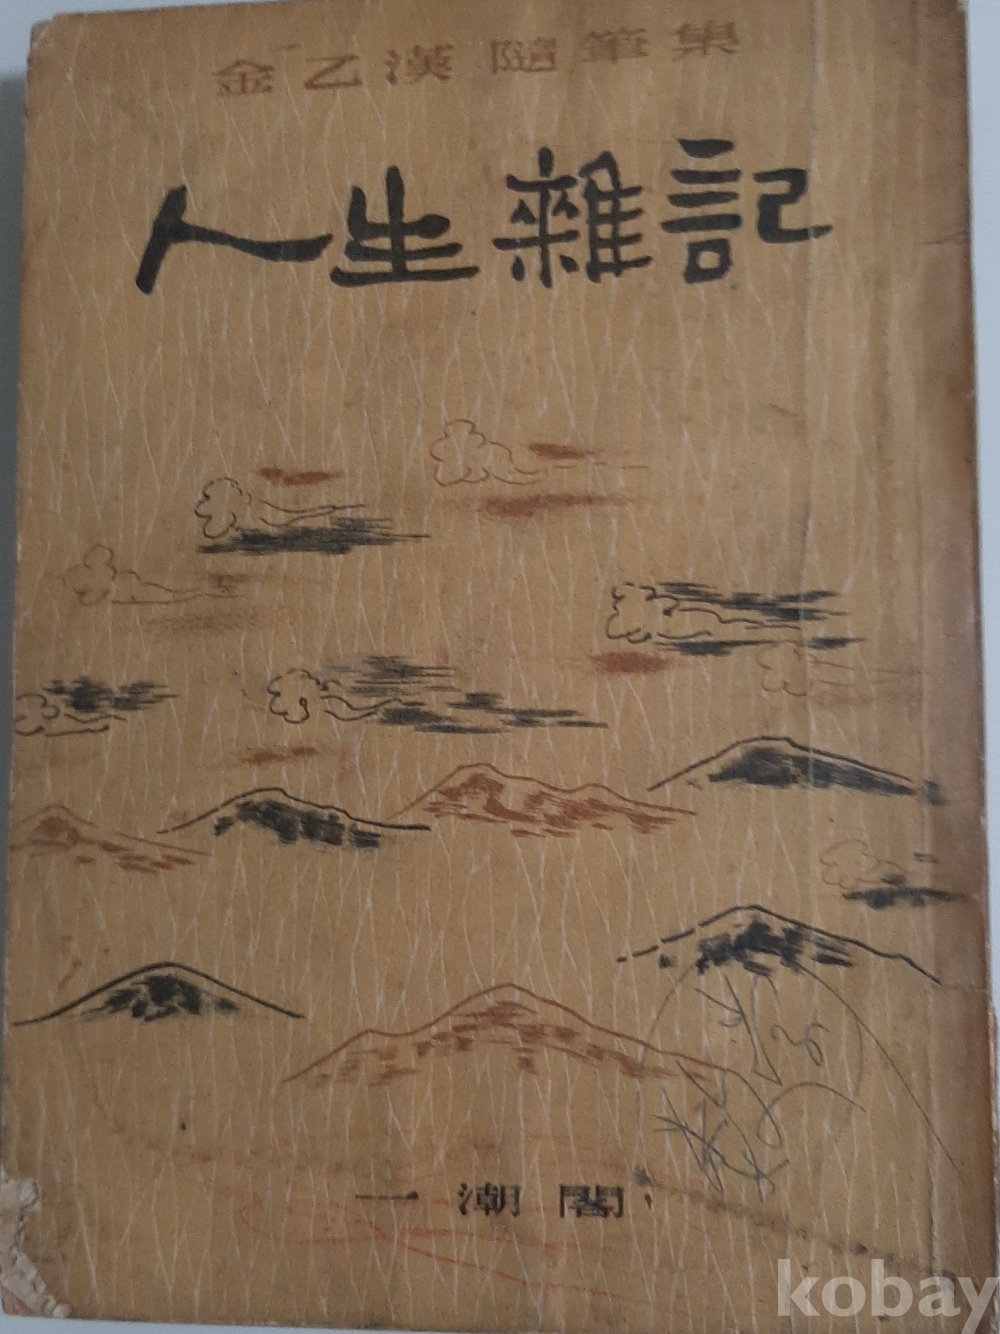 金乙漢 隨筆集
人生雜記
一潮閣
kobay